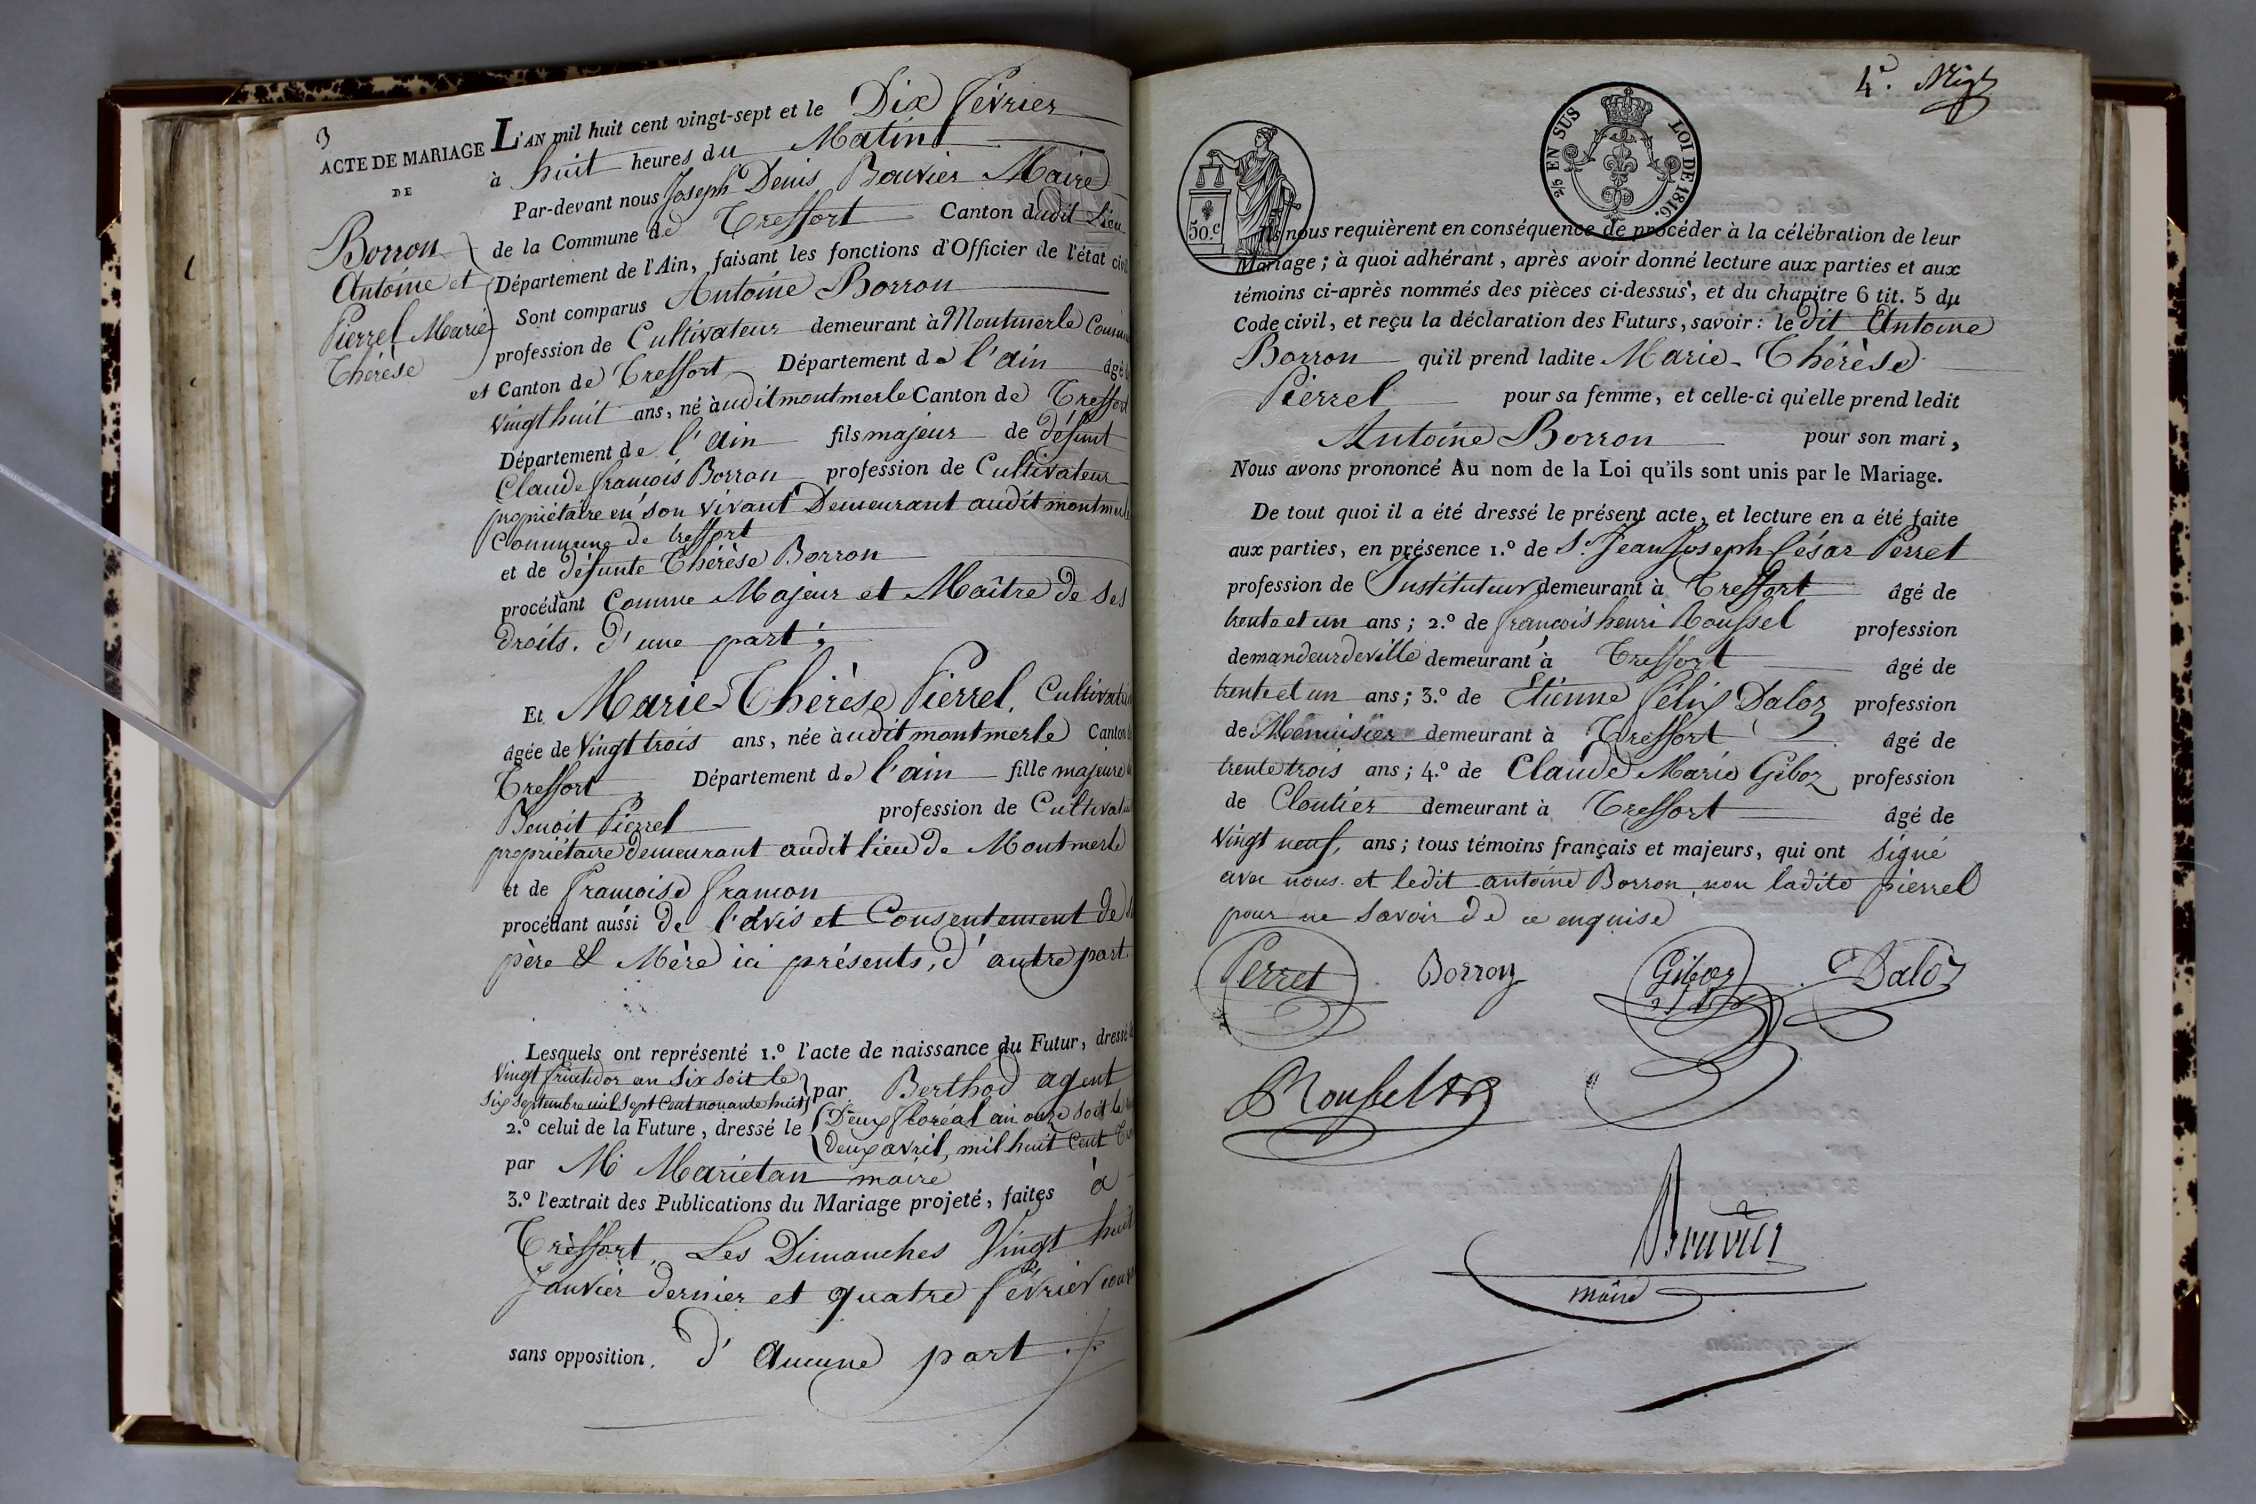 3
ACTE DE MARIAGE
DE
Borron
Antoine et
Pierrel Marie
Thérèse
L'AN mil huit cent vingt-sept et le Dix février
à huit heures du Matin
Par-devant nous Joseph Denis Bouvier Maire
de la Commune de Treffort Canton dudit Lieu
Département de l'Ain, faisant les fonctions d'Officier de l'état civil
Sont comparus Antoine Borron
profession de Cultivateur demeurant à Montmerle Commune
et Canton de Treffort Département de l'ain âgé de
vingt huit ans, né àudit montmerle Canton de Treffort
Département de l'ain fils majeur de défunt
Claude françois Borron profession de Cultivateur
propriétaire en son vivant Demeurant audit montmerle
Commune de treffort
et de défunte Thérèse Borron
procédant Comme Majeur et Maître de ses
droits. d'une part;
Et Marie-Thérèse Pierrel, Cultivatrice
âgée de vingt trois ans, née àudit montmerle Canton de
Treffort Département de l'ain fille majeure de
Benoit Pierrel profession de Cultivateur
propriétaire demeurant audit lieu de Montmerle
et de françoise francon
procédant aussi de l'avis et Consentement de
père & Mère ici présents, d'autre part
Lesquels ont représenté 1.º l'acte de naissance du Futur, dressé le
vingt fructidor an six soit le
six septembre mil sept Cent nonante huit par Berthod agent
2.º celui de la Future, dressé le Deux floréal an onze soit le vingt
deux avril, mil huit Cent Trois
par Mr Marietan maire
3.º l'extrait des Publications du Mariage projeté, faites à
Treffort, Les Dimanches Vingt huit
janvier dernier et quatre février courant
sans opposition. d'Aucune part
4e.
50.c
2/5 EN SUS LOI DE 1816.
Ils nous requièrent en conséquence de procéder à la célébration de leur
Mariage; à quoi adhérant, après avoir donné lecture aux parties et aux
témoins ci-après nommés des pièces ci-dessus, et du chapitre 6 tit. 5 du
Code civil, et reçu la déclaration des Futurs, savoir: le dit Antoine
Borron qu'il prend ladite Marie-Thérèse
Pierrel pour sa femme, et celle-ci qu'elle prend ledit
Antoine Borron pour son mari,
Nous avons prononcé Au nom de la Loi qu'ils sont unis par le Mariage.
De tout quoi il a été dressé le présent acte, et lecture en a été faite
aux parties, en présence 1.º de Sr. Jean Joseph César Perret
profession de Instituteur demeurant à Treffort âgé de
trente et un ans; 2.º de françois henri Roussel profession
de mandeur de ville demeurant à Treffort âgé de
trente et un ans; 3.º de Etienne félix Daloz profession
de Menuisier demeurant à Treffort âgé de
trente trois ans; 4.º de Claude Marie Giboz profession
de Cloutier demeurant à Treffort âgé de
vingt neuf, ans; tous témoins français et majeurs, qui ont signé
avec nous et ledit antoine Borron, non ladite pierrel
pour ne savoir de ce enquise
Perret Borron Giboz Daloz
Roussel
Bouvier
maire